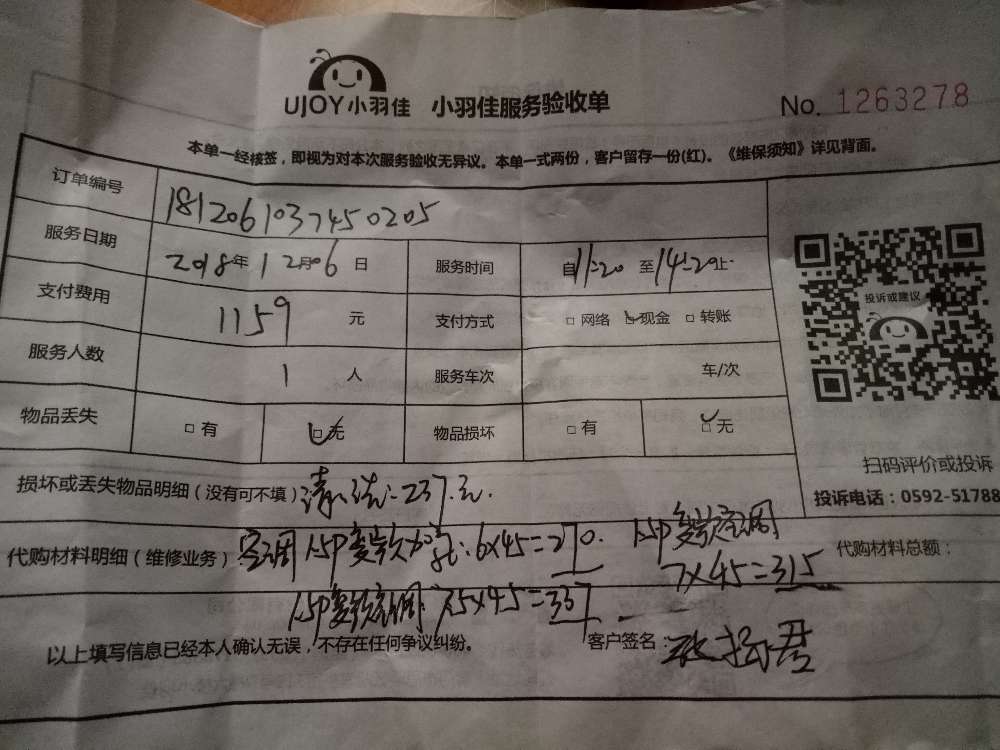 UJOY小羽佳 小羽佳服务验收单 No. 1263278
本单一经核签，即视为对本次服务验收无异议。本单一式两份，客户留存一份(红)。《维保须知》详见背面。
订单编号 1812061037450205
服务日期 2018年12月06日 服务时间 自11:20至14:20止
支付费用 1159元 支付方式 □网络 ☑现金 □转账
投诉或建议
服务人数 1人 服务车次 车/次
物品丢失 □有 ☑无 物品损坏 □有 ☑无
扫码评价或投诉
损坏或丢失物品明细（没有可不填）清洗:237元.
投诉电话：0592-51788
代购材料明细（维修业务）空调1.5P变频加氟:6X45=270. 1.5P变频空调
7X45=315 代购材料总额：
1.5P变频空调 7.5X45=337
以上填写信息已经本人确认无误，不存在任何争议纠纷。 客户签名：